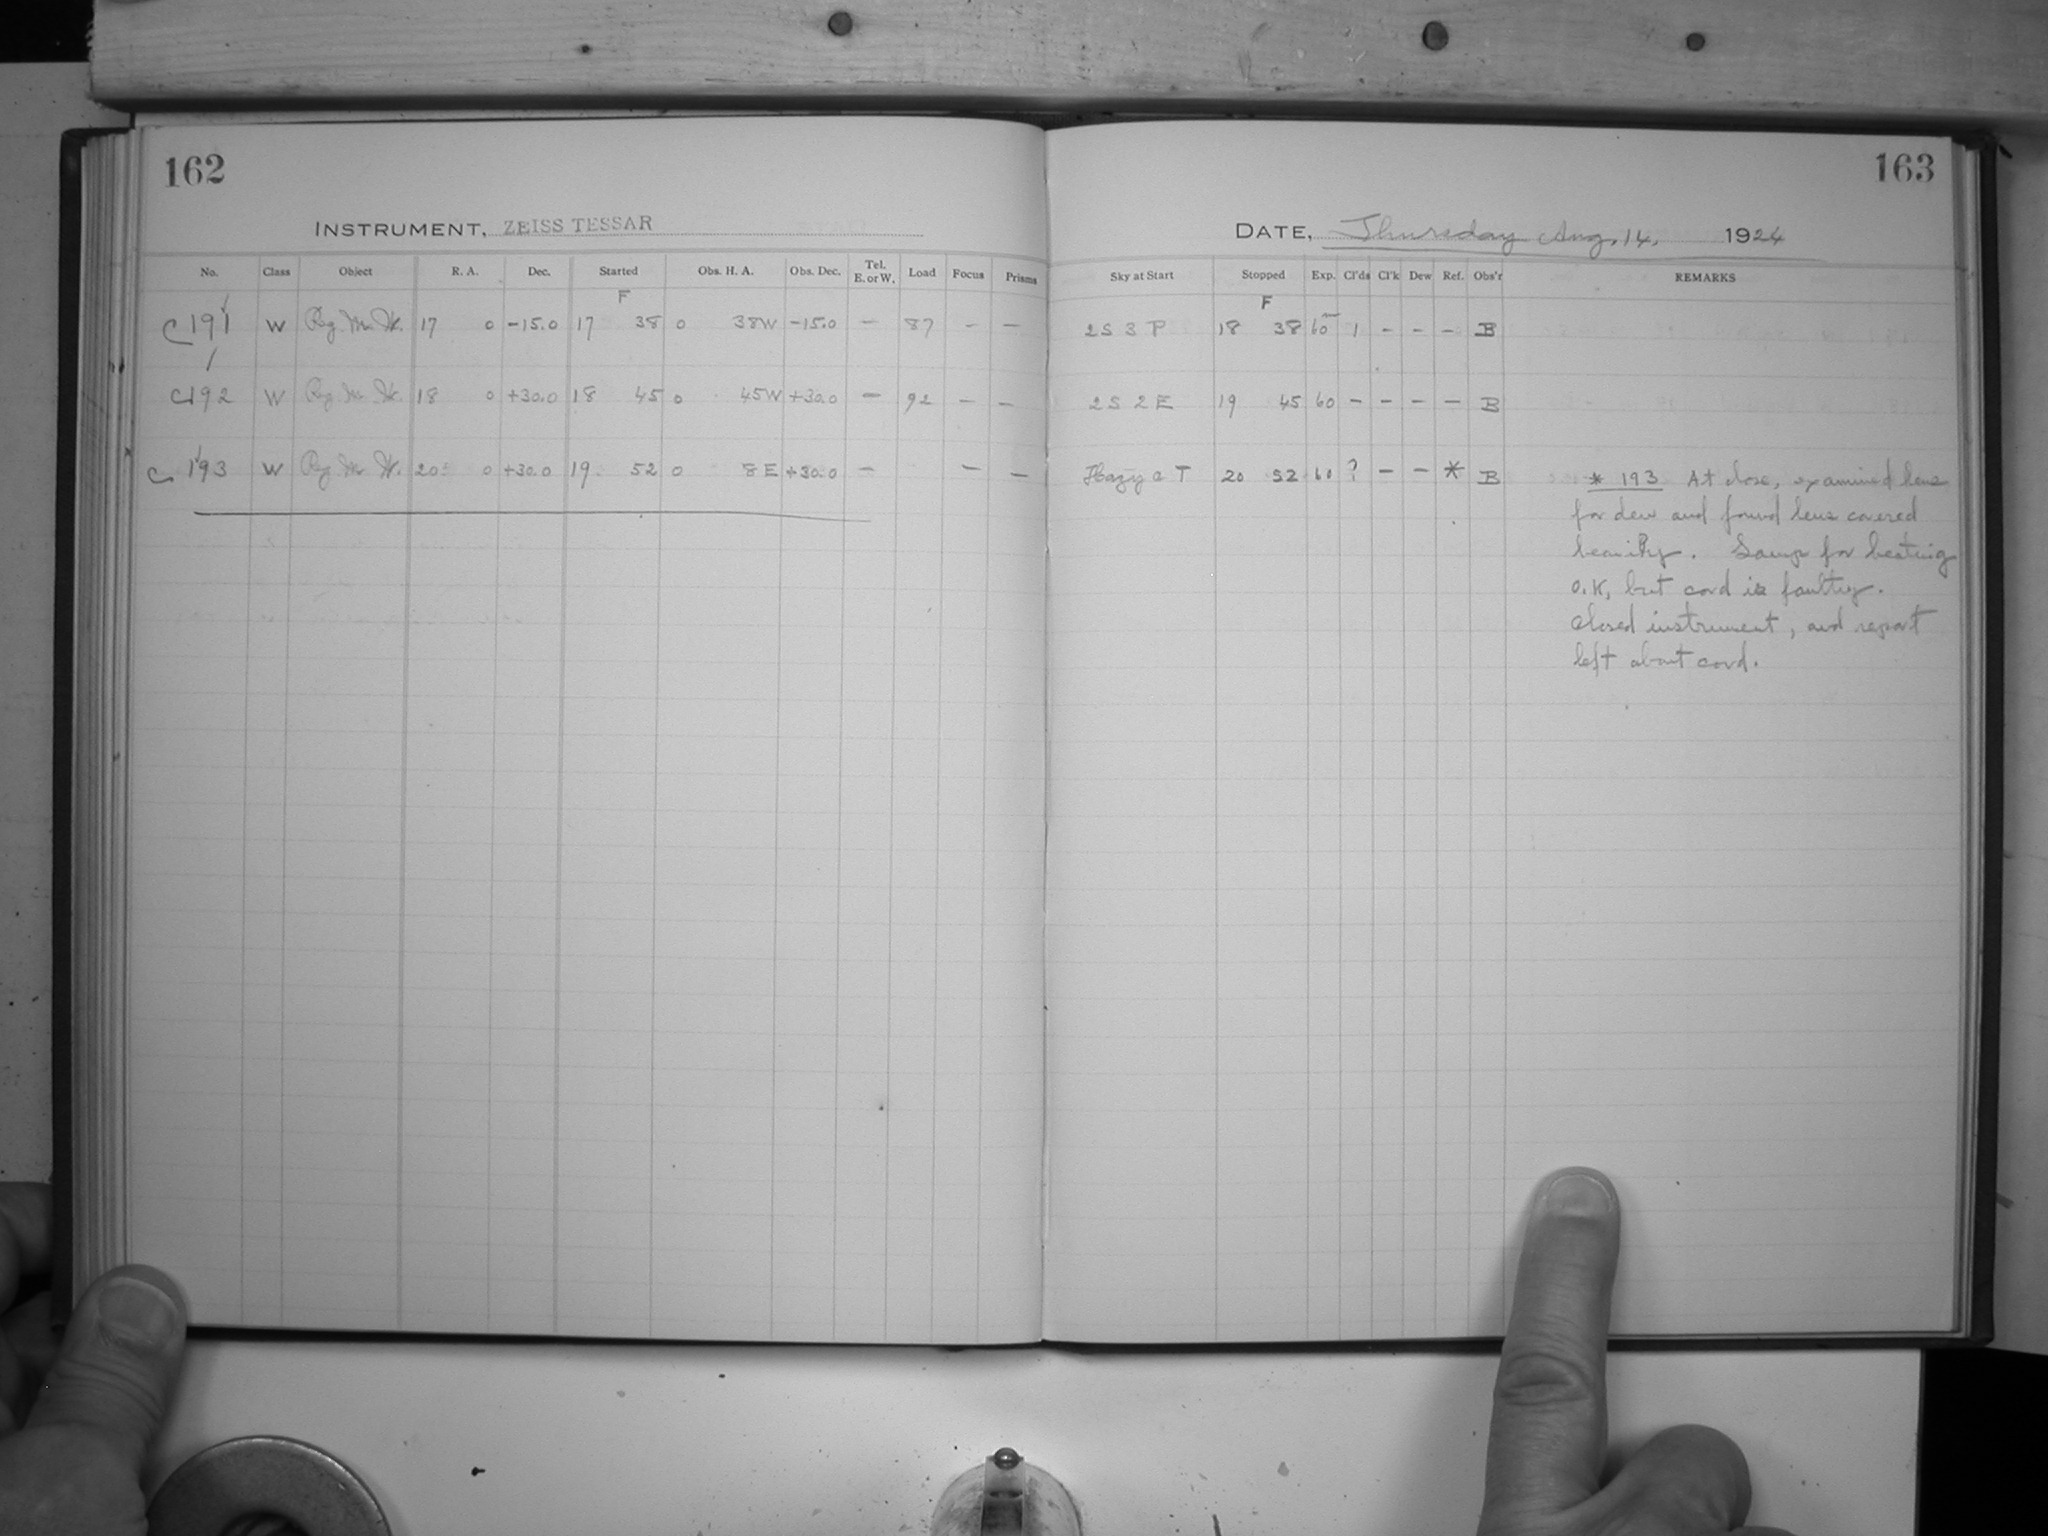 162
INSTRUMENT, ZEISS TESSAR
No. Class Object R. A. Dec. Started Obs. H. A. Obs. Dec. Tel. E. or W. Load Focus Prisms
F
C 191 W Rg. M. W. 17 0 -15.0 17 38 0 38W -15.0 - 87 - -
C 192 W Rg. M. W. 18 0 +30.0 18 45 0 45W +30.0 - 92 - -
C 193 W Rg. M. W. 20 0 +30.0 19 52 0 8E +30.0 - - -
163
DATE, Thursday Aug. 14, 1924
Sky at Start Stopped Exp. Cl'ds Cl'k Dew Ref. Obs'r REMARKS
F
2 S 3 P 18 38 60 1 - - - B
2 S 2 E 19 45 60 - - - - B
Hazy a T 20 52 60 ? - - * B
* 193 At close, examined lens
for dew and found lens covered
heavily. Lamp for heating
O.K, but cord is faulty.
Closed instrument, and report
left about cord.